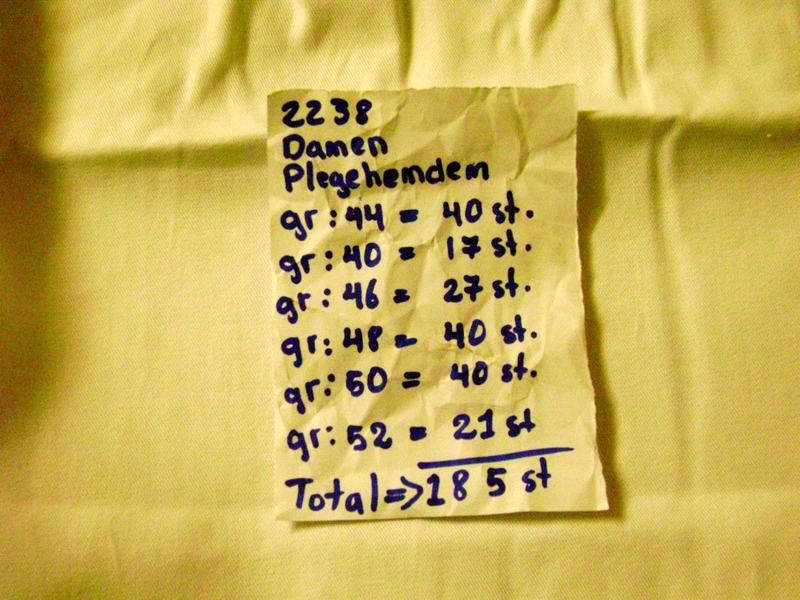 2238
Damen
Plegehemdem
gr: 44 = 40 st.
gr: 40 = 17 st.
gr: 46 = 27 st.
gr: 48 = 40 st.
gr: 50 = 40 st.
gr: 52 = 21 st
Total => 185 st